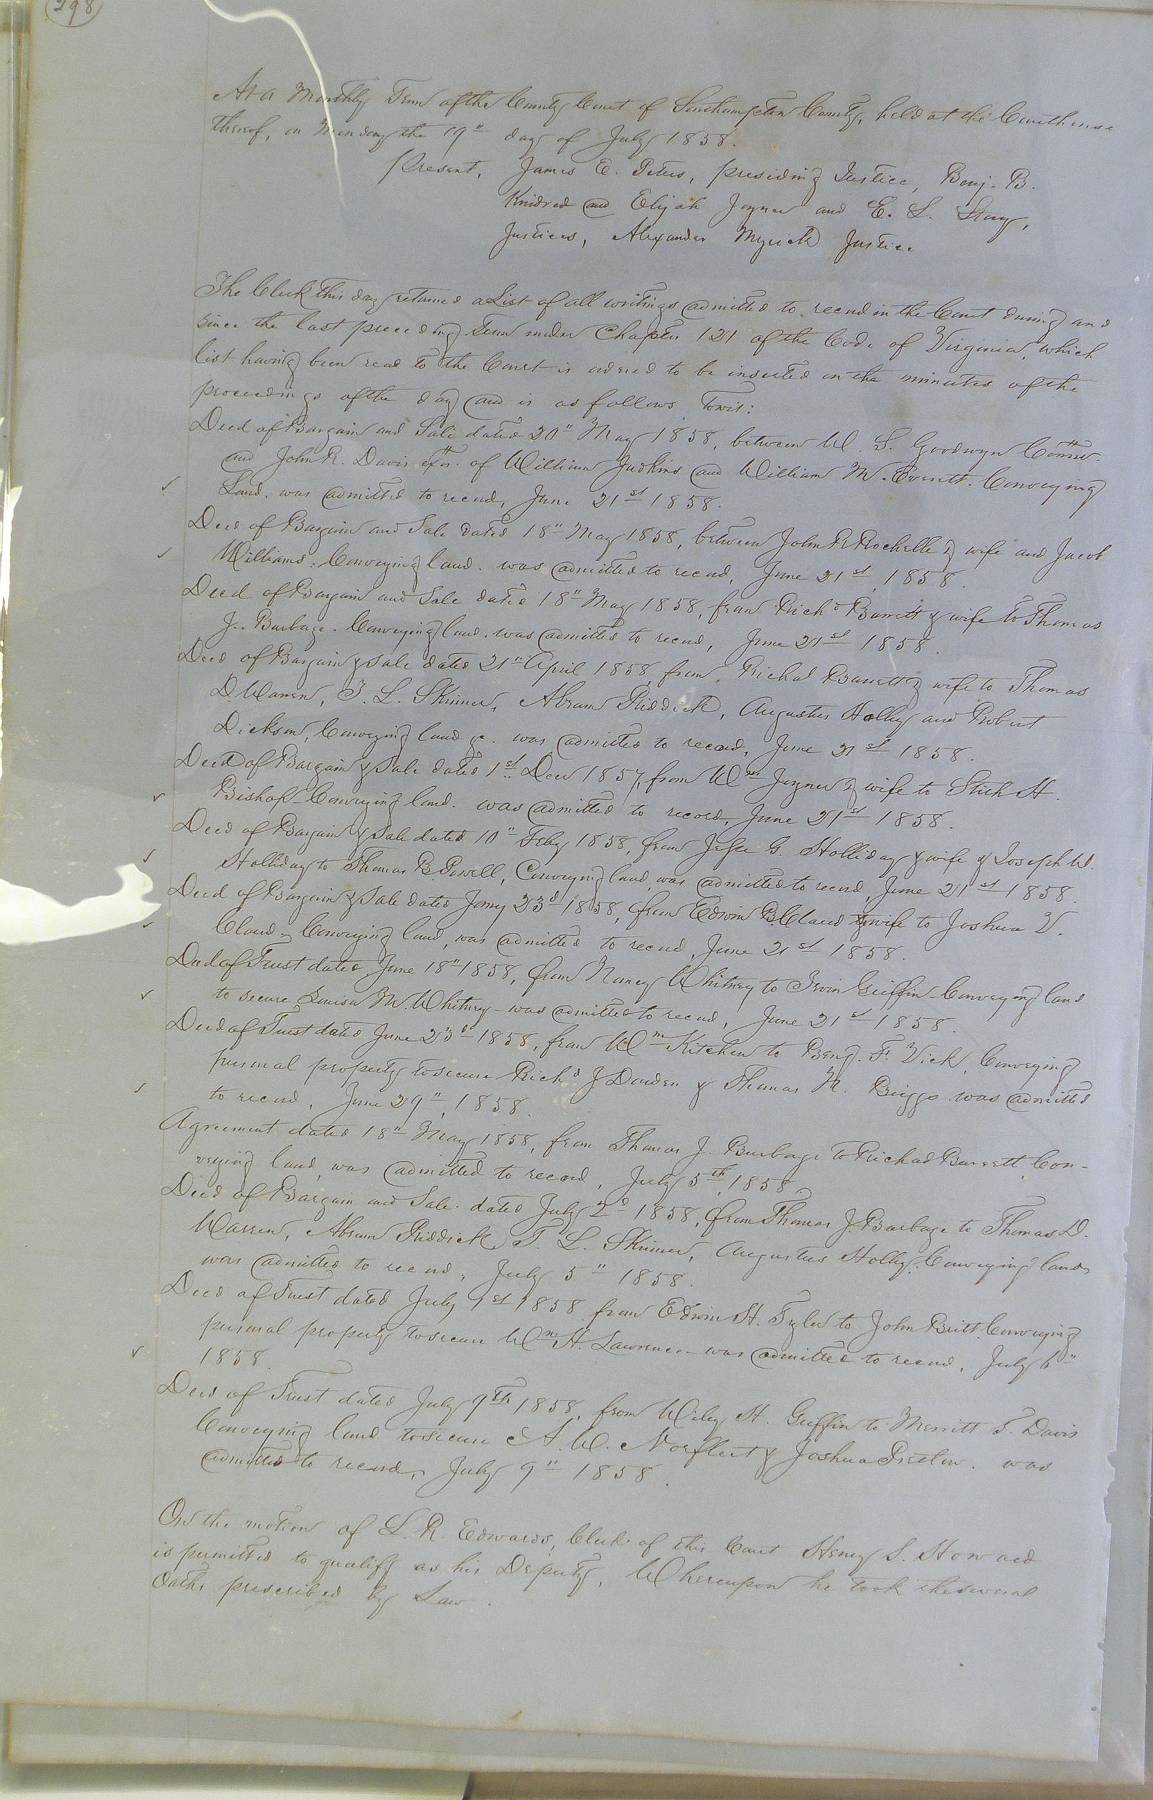 298
At a Monthly Term of the County Court of Southampton County, held at the Courthouse
thereof, on Monday the 19" day of July 1858.
Present, James E. Peters, presiding Justice, Benj. B.
Kindred and Elijah Joyner and E. S. Story,
Justices, Alexander Myrick Justice
The Clerk this day returned a List of all writings admitted to record in the Court during and
since the last preceding Term under Chapter 121 of the Code of Virginia, which
list having been read to the Court is ordered to be inserted on the minutes of the
proceedings of the day and is as follows Towit:
Deed of Bargain and Sale dated 20" May 1858, between W. S. Goodwyn Commr.
and John R. Davis exr. of William Judkins and William M. Everett. Conveying
Land. was admitted to record, June 21st 1858.
Deed of Bargain and Sale dated 18" May 1858, between John R Rochelle & wife and Jacob
Williams. Conveying land. was admitted to record, June 21st, 1858.
Deed of Bargain and Sale dated 18" May 1858, from Richd Barrett & wife to Thomas
J. Burbage. Conveying land. was admitted to record, June 21st 1858.
Deed of Bargain & Sale dated 21" April 1858, from Richad Barrett & wife to Thomas
D. Warren, T. L. Skinner, Abram Riddick, Augustus Holley and Robert
Dickson, Conveying land &c. was admitted to record, June 21st 1858.
Deed of Bargain & Sale dated 1st Decr 1857, from Wm Joyner & wife to Stith H.
Bishop Conveying land. was admitted to record, June 21st 1858.
Deed of Bargain & Sale dated 10" Feby 1858, from Jesse G. Holliday & wife & Joseph W.
Holliday to Thomas B. Powell, Conveying land was admitted to record, June 21st 1858.
Deed of Bargain & Sale dated Jany 23d 1858, from Edwin B. Claud & wife to Joshua V.
Claud. Conveying land, was admitted to record, June 21st 1858.
Deed of Trust dated June 18" 1858, from Nancy Whitney to Irvin Griffin Conveying land
to secure Louisa M. Whitney was admitted to record, June 21st 1858.
Deed of Trust dated June 23d 1858, from Wm Kitchen to Benj. F. Vick, Conveying
personal property to secure Richd J Dearden & Thomas H. Briggs was admitted
to record, June 29", 1858.
Agreement dated 18" May 1858, from Thomas J. Burbage to Richad Barrett Con-
veying land, was admitted to record, July 5th, 1858
Deed of Bargain and Sale. dated July 2d 1858, from Thomas J. Burbage to Thomas D.
Warren, Abram Riddick, T. L. Skinner, Augustus Holly. Conveying lands
was admitted to record, July 5" 1858.
Deed of Trust dated July 1st 1858 from Edwin H. Tyler to John Britt Conveying
personal property to secure Wm H. Lawrence was admitted to record, July 6"
1858.
Deed of Trust dated July 9th 1858, from Wiley H. Griffin to Merritt T. Davis
Conveying land to secure A. W. Norfleet & Joshua Pretlow. was
admitted to record, July 9" 1858.
On the motion of L. R. Edwards, Clerk of this Court Henry S. Howard
is permitted to qualify as his Deputy, Whereupon he took the several
Oaths prescribed by Law.